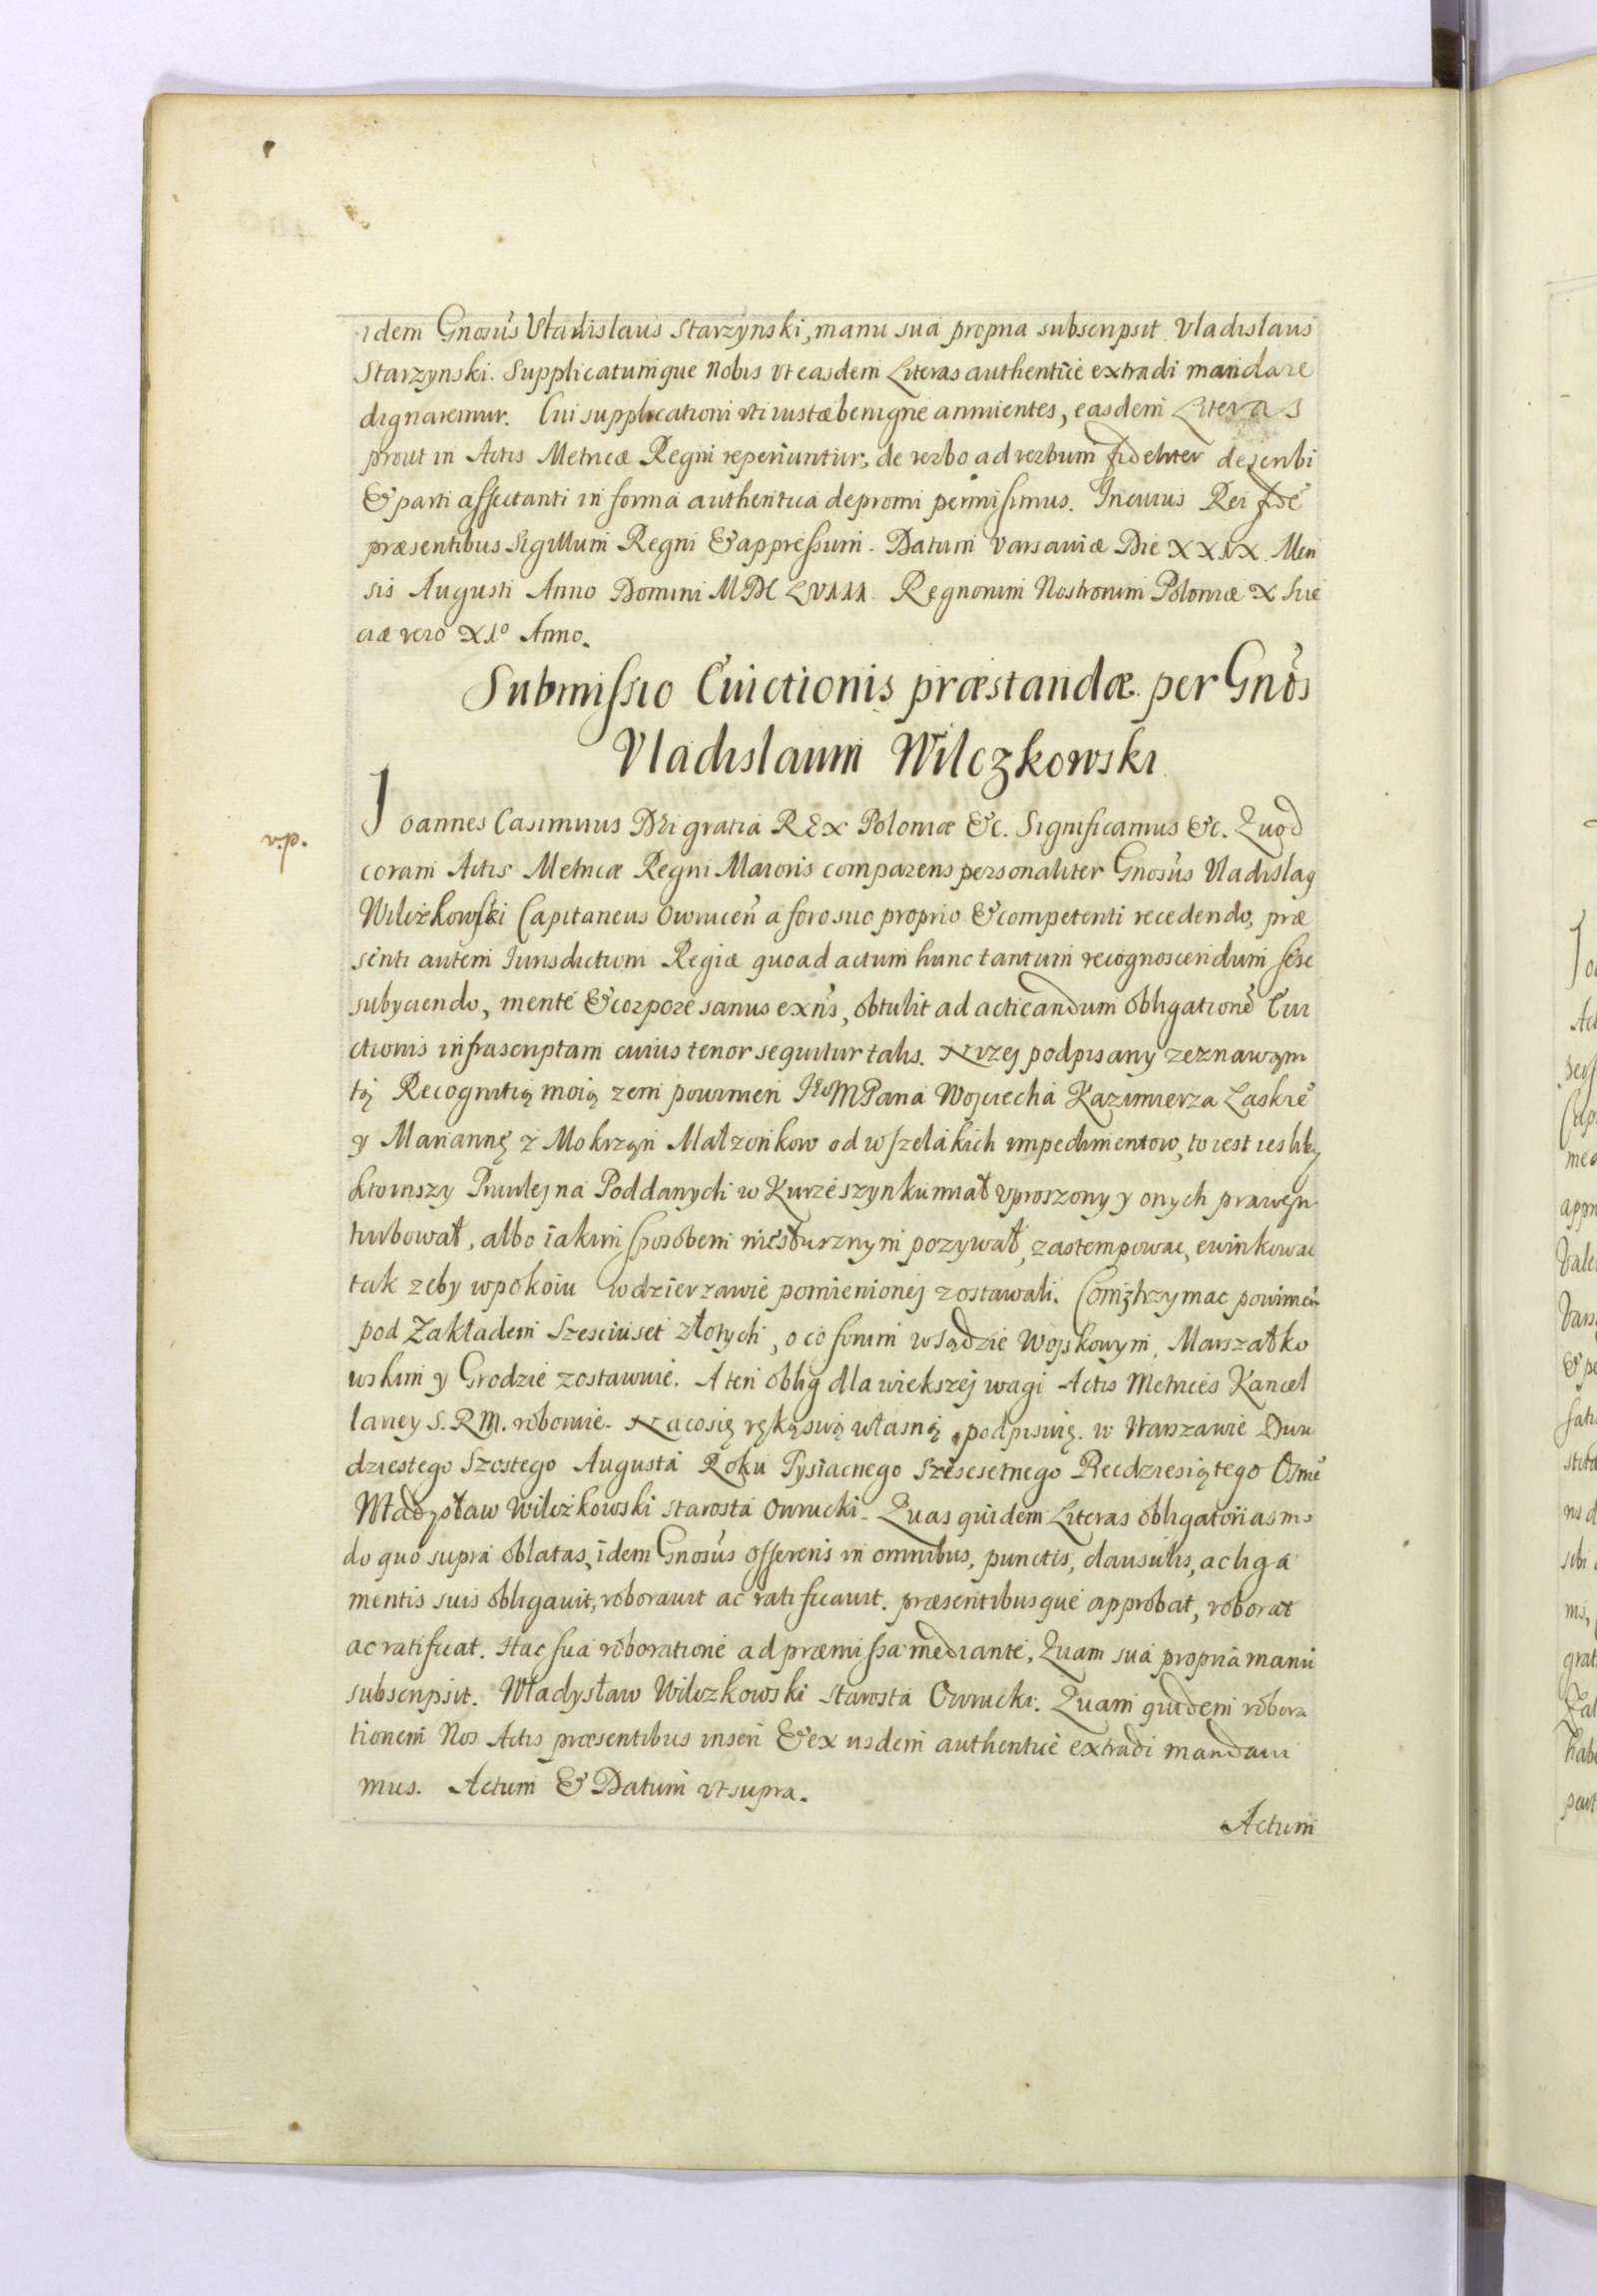 idem Gnosus Vladislaus Starzynski, manu sua propria subscripsit. Vladislaus
Starzynski. Supplicatumque Nobis vt easdem Literas authentice extradi mandare
dignaremur. Cui supplicationi vti iustæ benigne annuentes, easdem Literas
prout in Actis Metricæ Regni reperiuntur, de verbo ad verbum fideliter describi
& parti affectanti in forma authentica depromi permisimus. In cuius Rei fidē
præsentibus Sigillum Regni & appressum. Datum Varsaviæ Die XXIX. Men
sis Augusti Anno Domini MDCLVIII. Regnorum Nostrorum Poloniæ X Sue
ciæ vero XIº Anno.
Submissio Euictionis præstandæ per Gnos
Vladislaum Wilczkowski
v.p.
Joannes Casimirus Dei gratia REX Poloniæ &c. Significamus &c. Quod
coram Actis Metricæ Regni Maioris comparens personaliter Gnosus Vladislaq
Wilczkowski Capitaneus Owrucen a foro suo proprio & competenti recedendo, præ
senti autem Iurisdictioni Regiæ quoad actum hunc tantum recognoscendum sese
subyciendo, mente & corpore sanus exn̄s, obtulit ad acticandum obligationē Eui
ctionis infrascriptam cuius tenor sequitur talis. Nizej podpisany zeznawam
tą Recognitią moią zem powinien Jeo M Pana Wojciecha Kazimierza Laskie
y Mariannę z Mokrzyn Małzonkow od wszelakich impedimentow, to iest iesliby
ktornszy Priwilej na Poddanych w Kurzeszynku miał vproszony y onych prawem
turbował, albo iakim sposobem niesłusznym pozywał, zastempowac, ewinkowac
tak zeby w pokoiu w dzierzawie pomienionej zostawali. Com ztrzymac powinien
pod Zakładem Szesciuset złotych, o co forum w Sądzie Wojskowym, Marszałko
wskim y Grodzie zostawuie. A ten oblig dla wiekszej wagi Actis Metrices Kancel
lariey S. R M. roboruie. Na co się ręką swą własną podpisuię. w Warszawie Dwu
dziestego Szostego Augusta Roku Tysiacnego Szescsetnego Piecdziesiątego Osme
Władysław Wilczkowski Starosta Owrucki. Quas quidem Literas obligatorias mo
do quo supra oblatas, idem Gnosus offerens in omnibus, punctis, clausulis, ac liga
mentis suis obligauit, roborauit ac ratificauit. præsentibusque approbat, roborat
ac ratificat. Hac sua roboratione ad præmissa mediante, Quam sua propria manu
subscripsit. Władysław Wilczkowski Starosta Owrucki. Quam quidem robora
tionem Nos Actis præsentibus inseri & ex iisdem authentice extradi mandaui
mus. Actum & Datum vt supra.
Actum